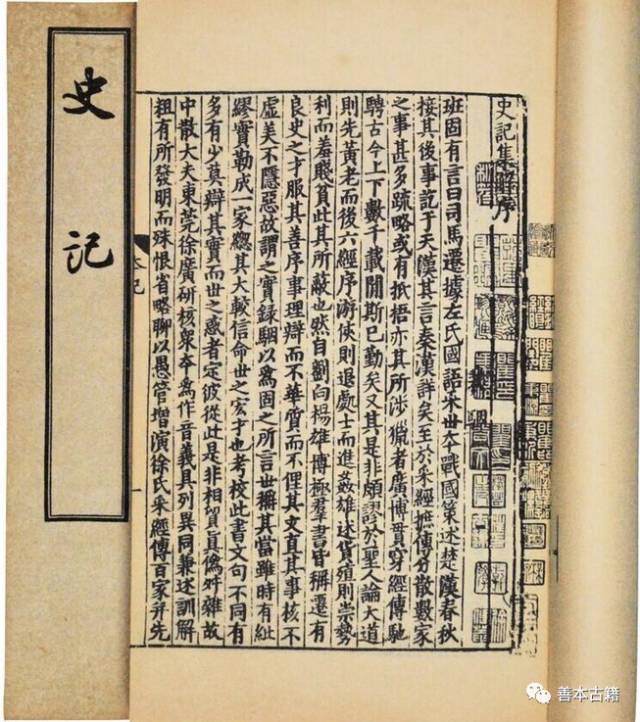 史記
史記集解序
班固有言曰司馬遷據左氏國語采世本戰國策述楚漢春秋
接其後事訖于天漢其言秦漢詳矣至於采經摭傳分散數家
之事甚多疏略或有抵梧亦其所涉獵者廣博貫穿經傳馳
騁古今上下數千載閒斯已勤矣又其是非頗謬於聖人論大道
則先黃老而後六經序游俠則退處士而進姦雄述貨殖則崇勢
利而羞賤貧此其所蔽也然自劉向楊雄博極羣書皆稱遷有
良史之才服其善序事理辯而不華質而不俚其文直其事核不
虛美不隱惡故謂之實録駰以爲固之所言世稱其當雖時有紕
繆實勒成一家總其大較信命世之宏才也考校此書文句不同有
多有少莫辯其實而世之惑者定彼從此是非相貿真僞舛雜故
中散大夫東莞徐廣研核衆本爲作音義具列異同兼述訓解
粗有所發明而殊恨省略聊以愚管增演徐氏采經傳百家并先
一
善本古籍